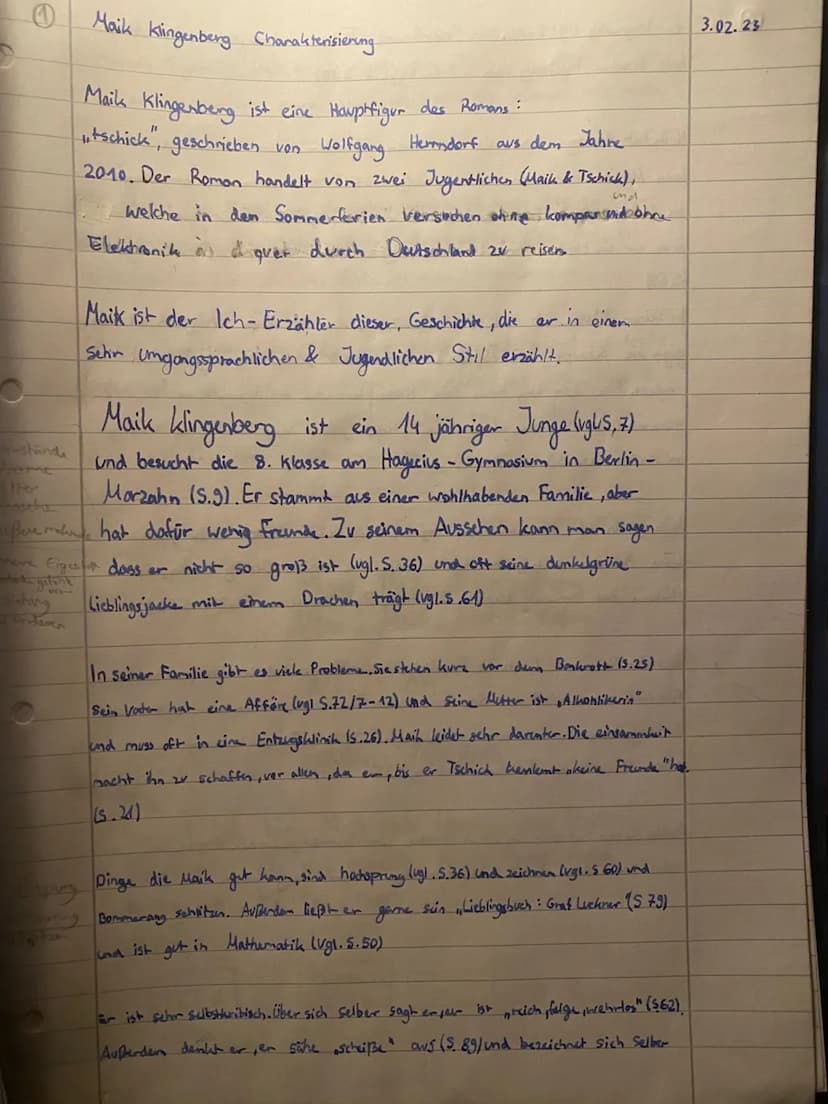 1
Maik Klingenberg Charakterisierung
3.02.23
Maik Klingenberg ist eine Hauptfigur des Romans:
„tschick", geschrieben von Wolfgang Herrndorf aus dem Jahre
2010. Der Roman handelt von zwei Jugentlichen (Maik & Tschick),
und
welche in den Sommerferien versuchen ohne kompas und ohne
Elektronik quer durch Deutschland zu reisen.
Maik ist der Ich-Erzähler dieser Geschichte, die er in einem
sehr umgangssprachlichen & Jugendlichen Stil erzählt.
Maik Klingenberg ist ein 14 jähriger Junge (vgl. S, 7)
und besucht die 8. Klasse am Hagecius-Gymnasium in Berlin-
Marzahn (S.9). Er stammt aus einer wohlhabenden Familie, aber
hat dafür wenig Freunde. Zu seinem Aussehen kann man sagen
dass er nicht so groß ist (vgl. S. 36) und oft seine dunkelgrüne
Lieblingsjacke mit einem Drachen trägt (vgl. S. 61)
In seiner Familie gibt es viele Probleme. Sie stehen kurz vor dem Bankrott (S.25)
Sein Vater hat eine Affäre (vgl S.72/7-12) und seine Mutter ist „Alkoholikerin"
und muss oft in eine Entzugsklinik (S.26). Maik leidet sehr darunter. Die einsammheit
macht ihn zu schaffen, vor allen, da er, bis er Tschick kennlernt „keine Freunde" hat.
(S. 21)
Dinge die Maik gut kann, sind hochsprung (vgl. S.36) und zeichnen (vgl. S 60) und
Bommerang schlitzen. Außerdem ließt er gerne sein „Lieblingsbuch: Graf Luckner" (S 79)
und ist gut in Mathematik (Vgl. S. 50)
Er ist sehr selbstkritisch. Über sich selber sagt er, er ist „reich, feige, wehrlos" (S.62).
Außerdem denkt er, er sähe „scheiße" aus (S. 89) und bezeichnet sich selber